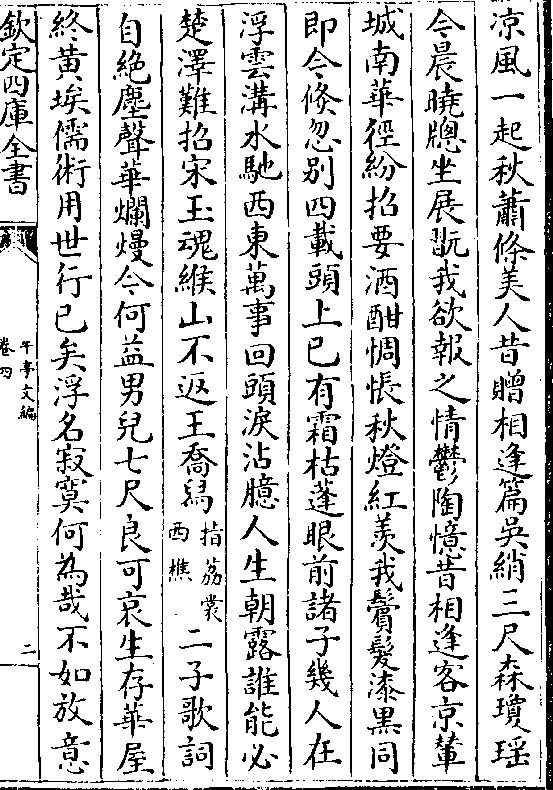 凉風一起秋蕭條美人昔贈相逢篇吳綃三尺森瓊瑶
今晨曉牎坐展翫我欲報之情鬱陶憶昔相逢客京輦
城南華徑紛招要酒酣惆悵秋燈紅羨我鬢髮漆黒同
即今倐忽别四載頭上已有霜枯蓬眼前諸子幾人在
浮雲溝水馳西東萬事回頭淚沾臆人生朝露誰能必
楚澤難招宋玉魂緱山不返王喬舄指荔裳西樵二子歌詞
自絶塵聲華爛熳今何益男兒七尺良可哀生存華屋
終黄埃儒術用世行已矣浮名寂寞何為哉不如放意
欽定四庫全書
午亭文編
卷四
二